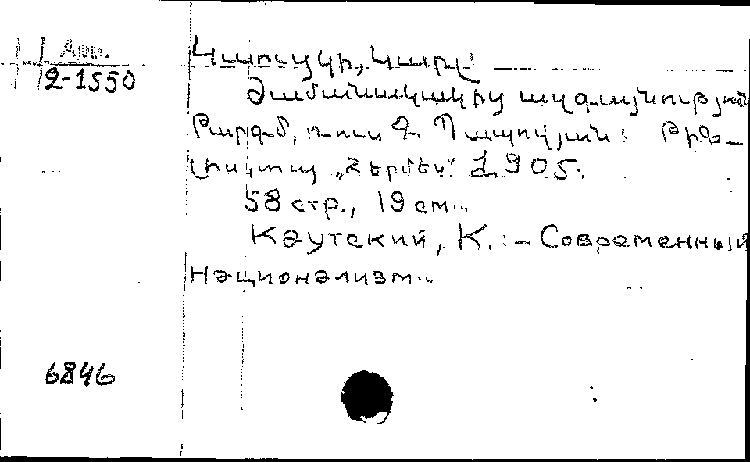 Арм.
2-1550
Կաուցկի, Կարլ
Ժամանակակից ազգայնութիւն
Թարգմ. Թիֆ-
լիս, տպ. „Հերմես“ 1905.
58 стр., 19 см.
Каутский, К. - Современный
национализм.
6846